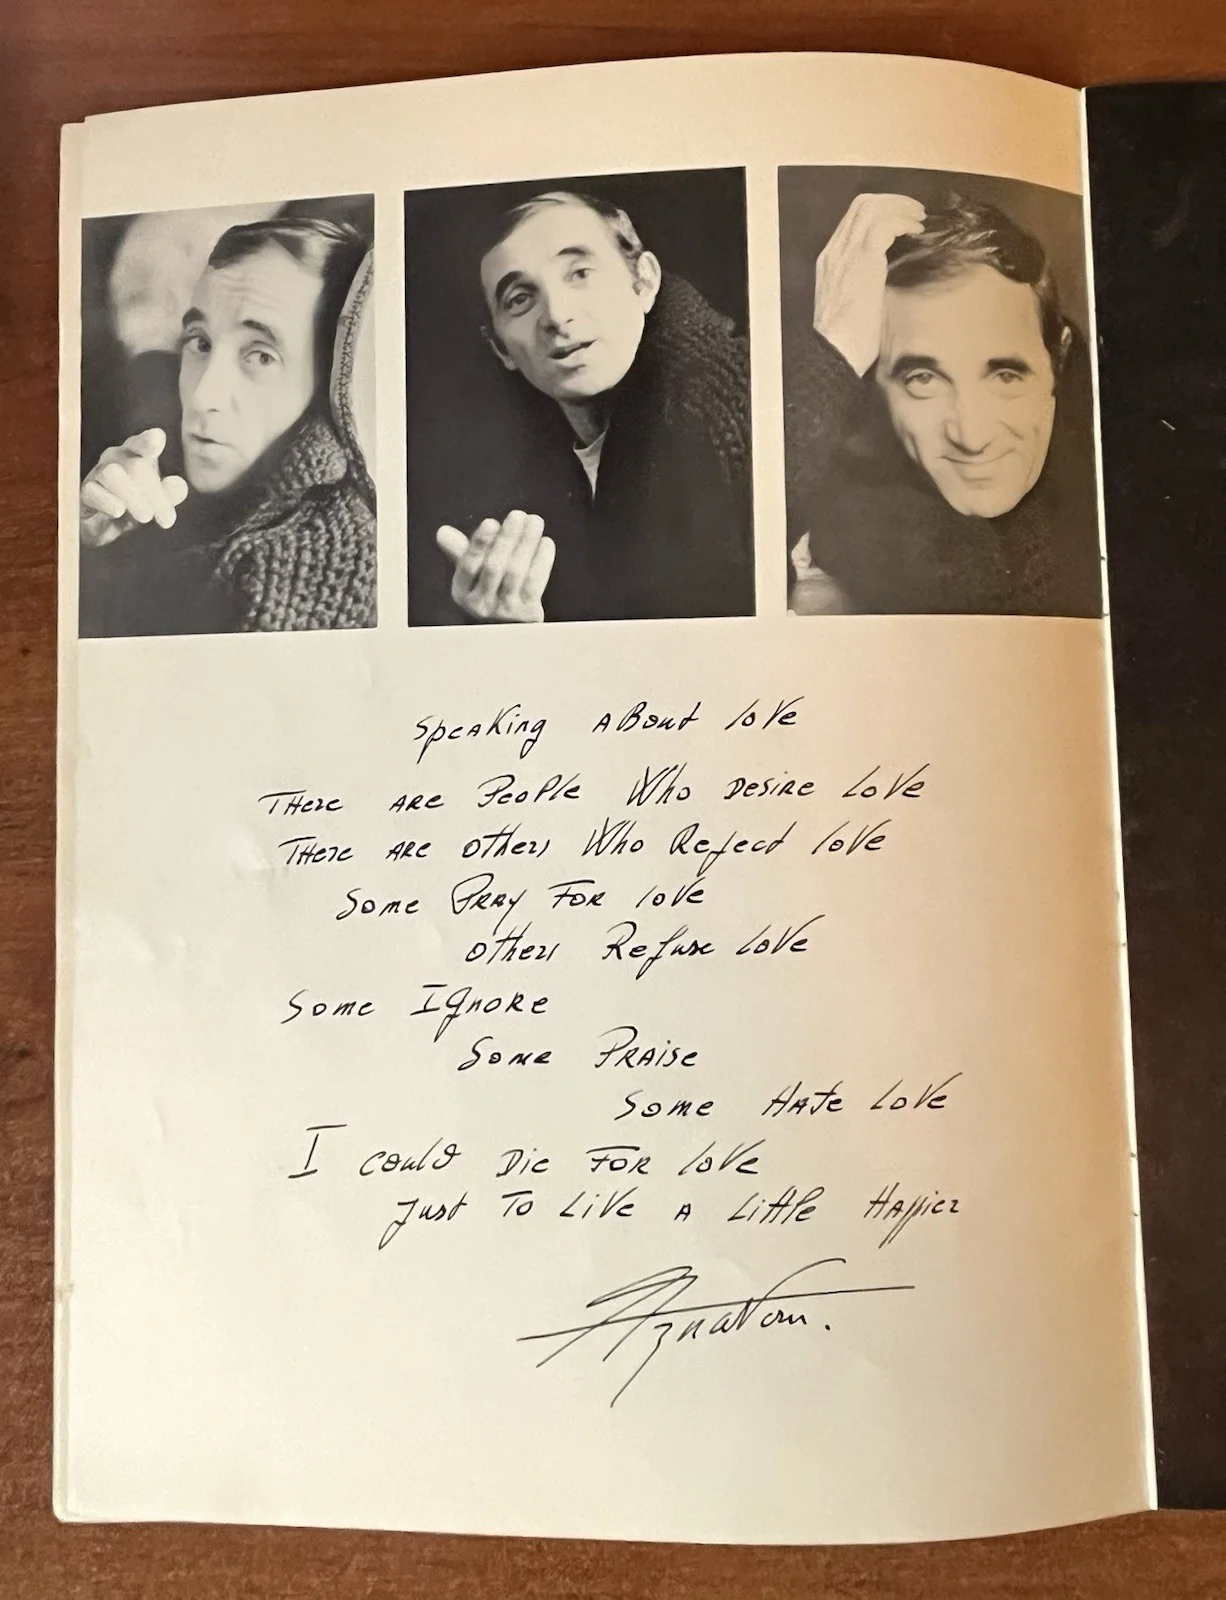 Speaking About love
There are People Who Desire Love
There are others Who Reject love
Some Pray For love
others Refuse Love
Some Ignore
Some Praise
Some Hate Love
I could Die For love
Just To Live A Little Happier
Aznavour.